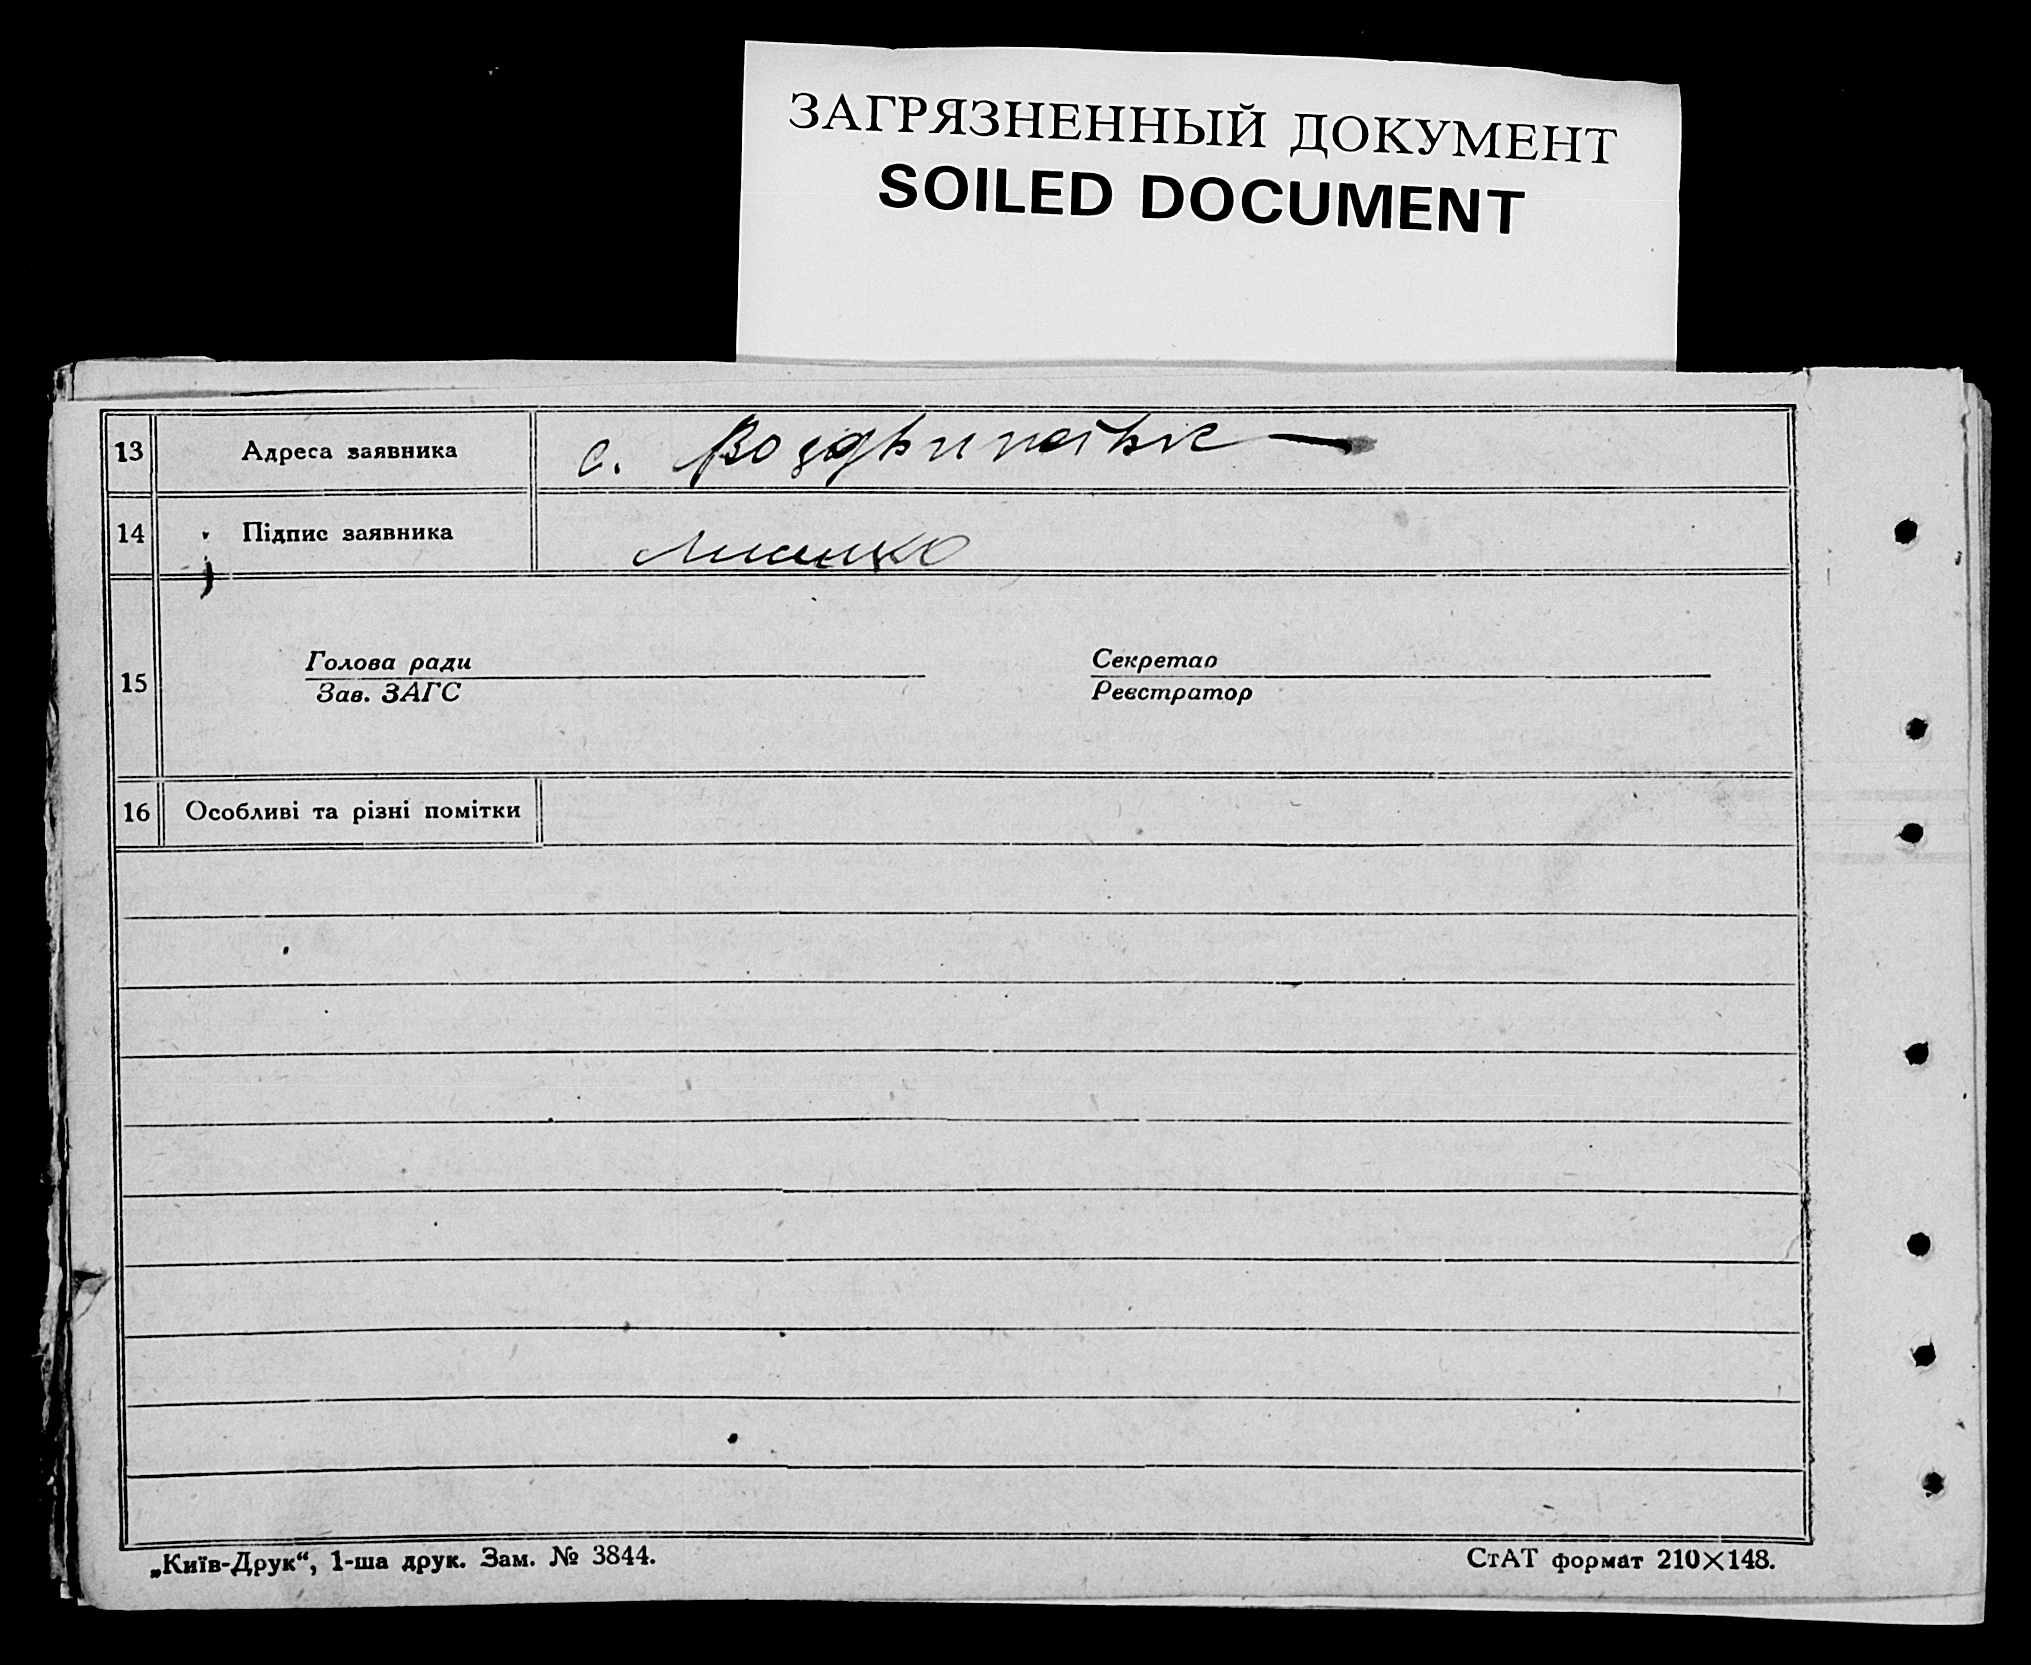 ЗАГРЯЗНЕННЫЙ ДОКУМЕНТ
SOILED DOCUMENT
13 Адреса заявника с.
14 Підпис заявника
Голова ради Секретар
15
Зав. ЗАГС Реєстратор
16 Особливі та різні помітки
„Київ-Друк“, 1-ша друк. Зам. № 3844. СтАТ формат 210×148.